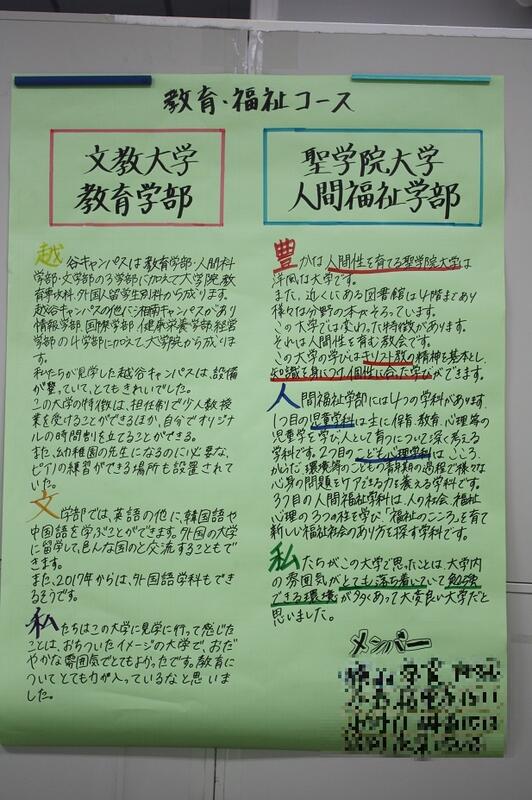 教育・福祉コース
文教大学
教育学部
越谷キャンパスは教育学部・人間科
学部・文学部の3学部に加えて大学院、教
育専攻科、外国人留学生別科から成ります。
越谷キャンパスの他に湘南キャンパスがあり
情報学部 国際学部 健康栄養学部 経営
学部の4学部に加えて大学院から成りま
す。
私たちが見学した越谷キャンパスは、設備
が整っていて、とてもきれいでした。
この大学の特徴は、担任制で少人数授
業を受けることができるほか、自分でオリジナ
ルの時間割を立てることができる。
また、幼稚園の先生になるのに必要な、
ピアノの練習ができる場所も設置されて
いた。
文学部では、英語の他に、韓国語や
中国語を学ぶことができます。外国の大学
に留学して、色んな国のと交流することもで
きます。
また、2017年からは、外国語学科もでき
るそうです。
私たちはこの大学に見学に行って感じた
ことは、おちついたイメージの大学で、おだ
やかな雰囲気でとてもよかったです。教育に
ついてとても力が入っているなと思いま
した。
聖学院大学
人間福祉学部
豊かな人間性を育てる聖学院大学は
洋風な大学です。
また、近くにある図書館は4階まであり
様々な分野の本がそろっています。
この大学では変わった特徴があります。
それは人間性を育む教会です。
この大学の学びはキリスト教の精神を基本とし、
知識を身につけ、個性に合った学びができます。
人間福祉学部には4つの学科があります。
1つ目の児童学科は主に保育、教育、心理等の
児童学を学び、人として育つについて深く考える
学科です。2つ目のこども心理学科は、こころ、
からだ、環境等のこどもの
心身の問題をケアできる力を養える学科です。
3つ目の人間福祉学科は、人の社会、福祉
心理の3つの柱を学び、「福祉のこころ」を育て
新しい福祉社会のあり方を探す学科です。
私たちがこの大学で思ったことは、大学内
の雰囲気がとても落ち着いていて勉強
できる環境が多くあって大変良い大学だと
思いました。
メンバー